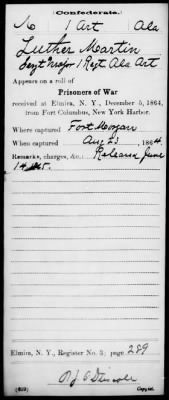 (Confederate.)
M 1 Art Ala
Luther Martin
Sergt Major 1 Regt Ala Art
Appears on a roll of
Prisoners of War
received at Elmira, N. Y., December 5, 1864,
from Fort Columbus, New York Harbor.
Where captured Fort Morgan
When captured Aug 23, 1864.
Remarks, charges, &c.: Released June
14
Elmira, N. Y., Register No. 3; page 289
Copyist.